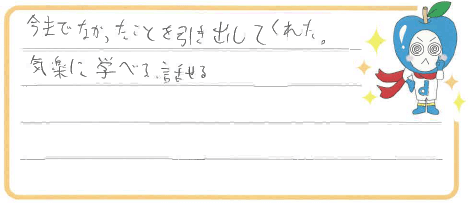 今までなかったことを引き出してくれた。
気楽に学べる、話せる
d